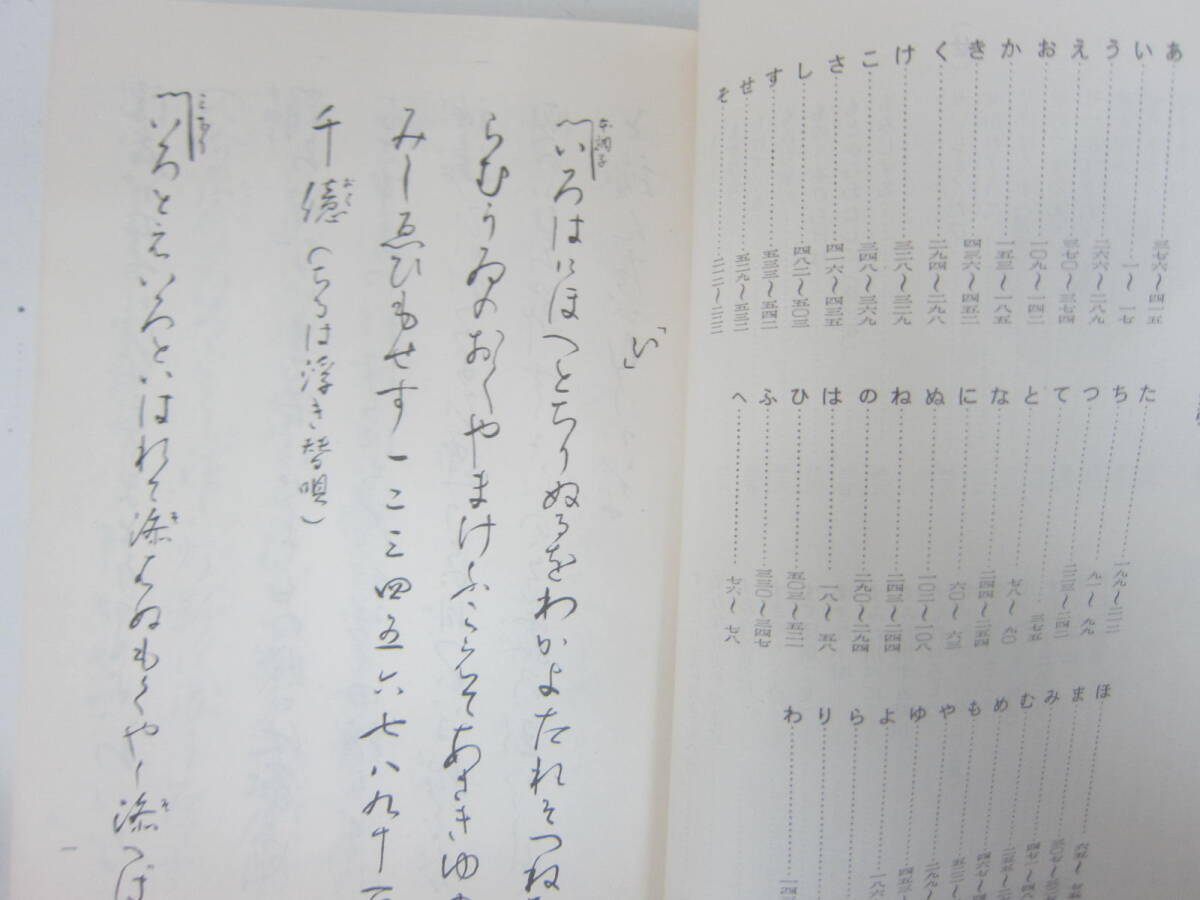 あ……三七六〜四一五
い……一〜一七
う……二六六〜二八九
え……三七〇〜三七四
お……一〇九〜一四二
か……一五三〜一八五
き……四三六〜四五二
く……二九四〜二九八
け……三二八〜三二九
こ……三四八〜三六九
さ……四一六〜四三五
し……四八二〜五〇三
す……五三三〜五四二
せ……五二九〜五三二
そ……二二二〜二三三
た……一九九〜二二二
ち……九一〜九九
つ……二三三〜二四二
て……三七五
と……七八〜九〇
な……二四四〜二五四
に……六〇〜六三
ぬ……一〇二〜一〇八
ね……二四三〜二四四
の……二九〇〜二九四
は……一八〜五八
ひ……五〇三〜五二二
ふ……三三〇〜三四七
へ……七六〜七八
ほ
ま
み
む
め
も
や
ゆ
よ
ら
り
わ
「い」
本調子
いろはにほへとちりぬるをわかよたれそつね
らむうゐのおくやまけふこえてあさきゆ
みしゑひもせす一二三四五六七八九十百
千億（は浮き替唄）
いろといはれて添はぬもくやし添へば
一